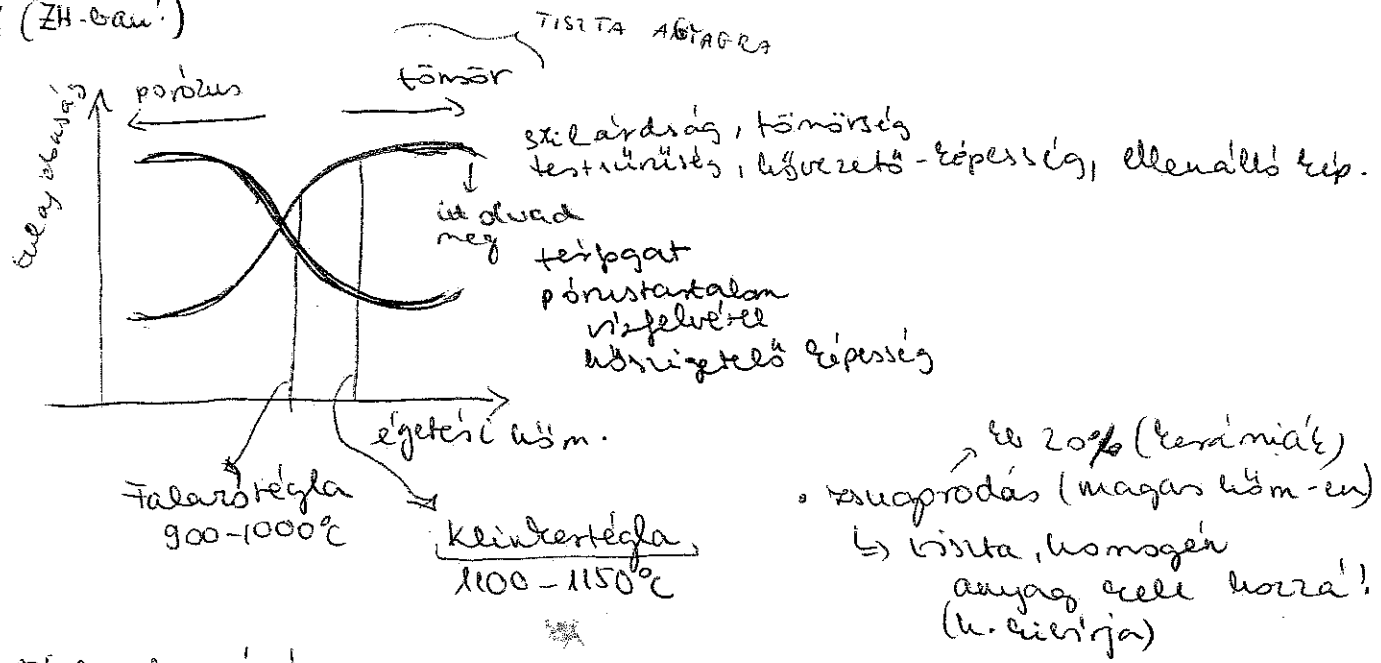 (ZH-ban!)
TISZTA ANYAGRA
porózus
tömör
tulajdonság
szilárdság, tömörség
testsűrűség, hővezető-képesség, ellenálló kép.
itt olvad
meg
térfogat
pórustartalom
vízfelvétel
hőszigetelő képesség
égetési hőm.
Falazótégla
900-1000°C
Klinkertégla
1100-1150°C
kb 20% (kerámiák)
• zsugorodás (magas hőm-en)
↳ tiszta, homogén
anyag kell hozzá!
(h. kibírja)